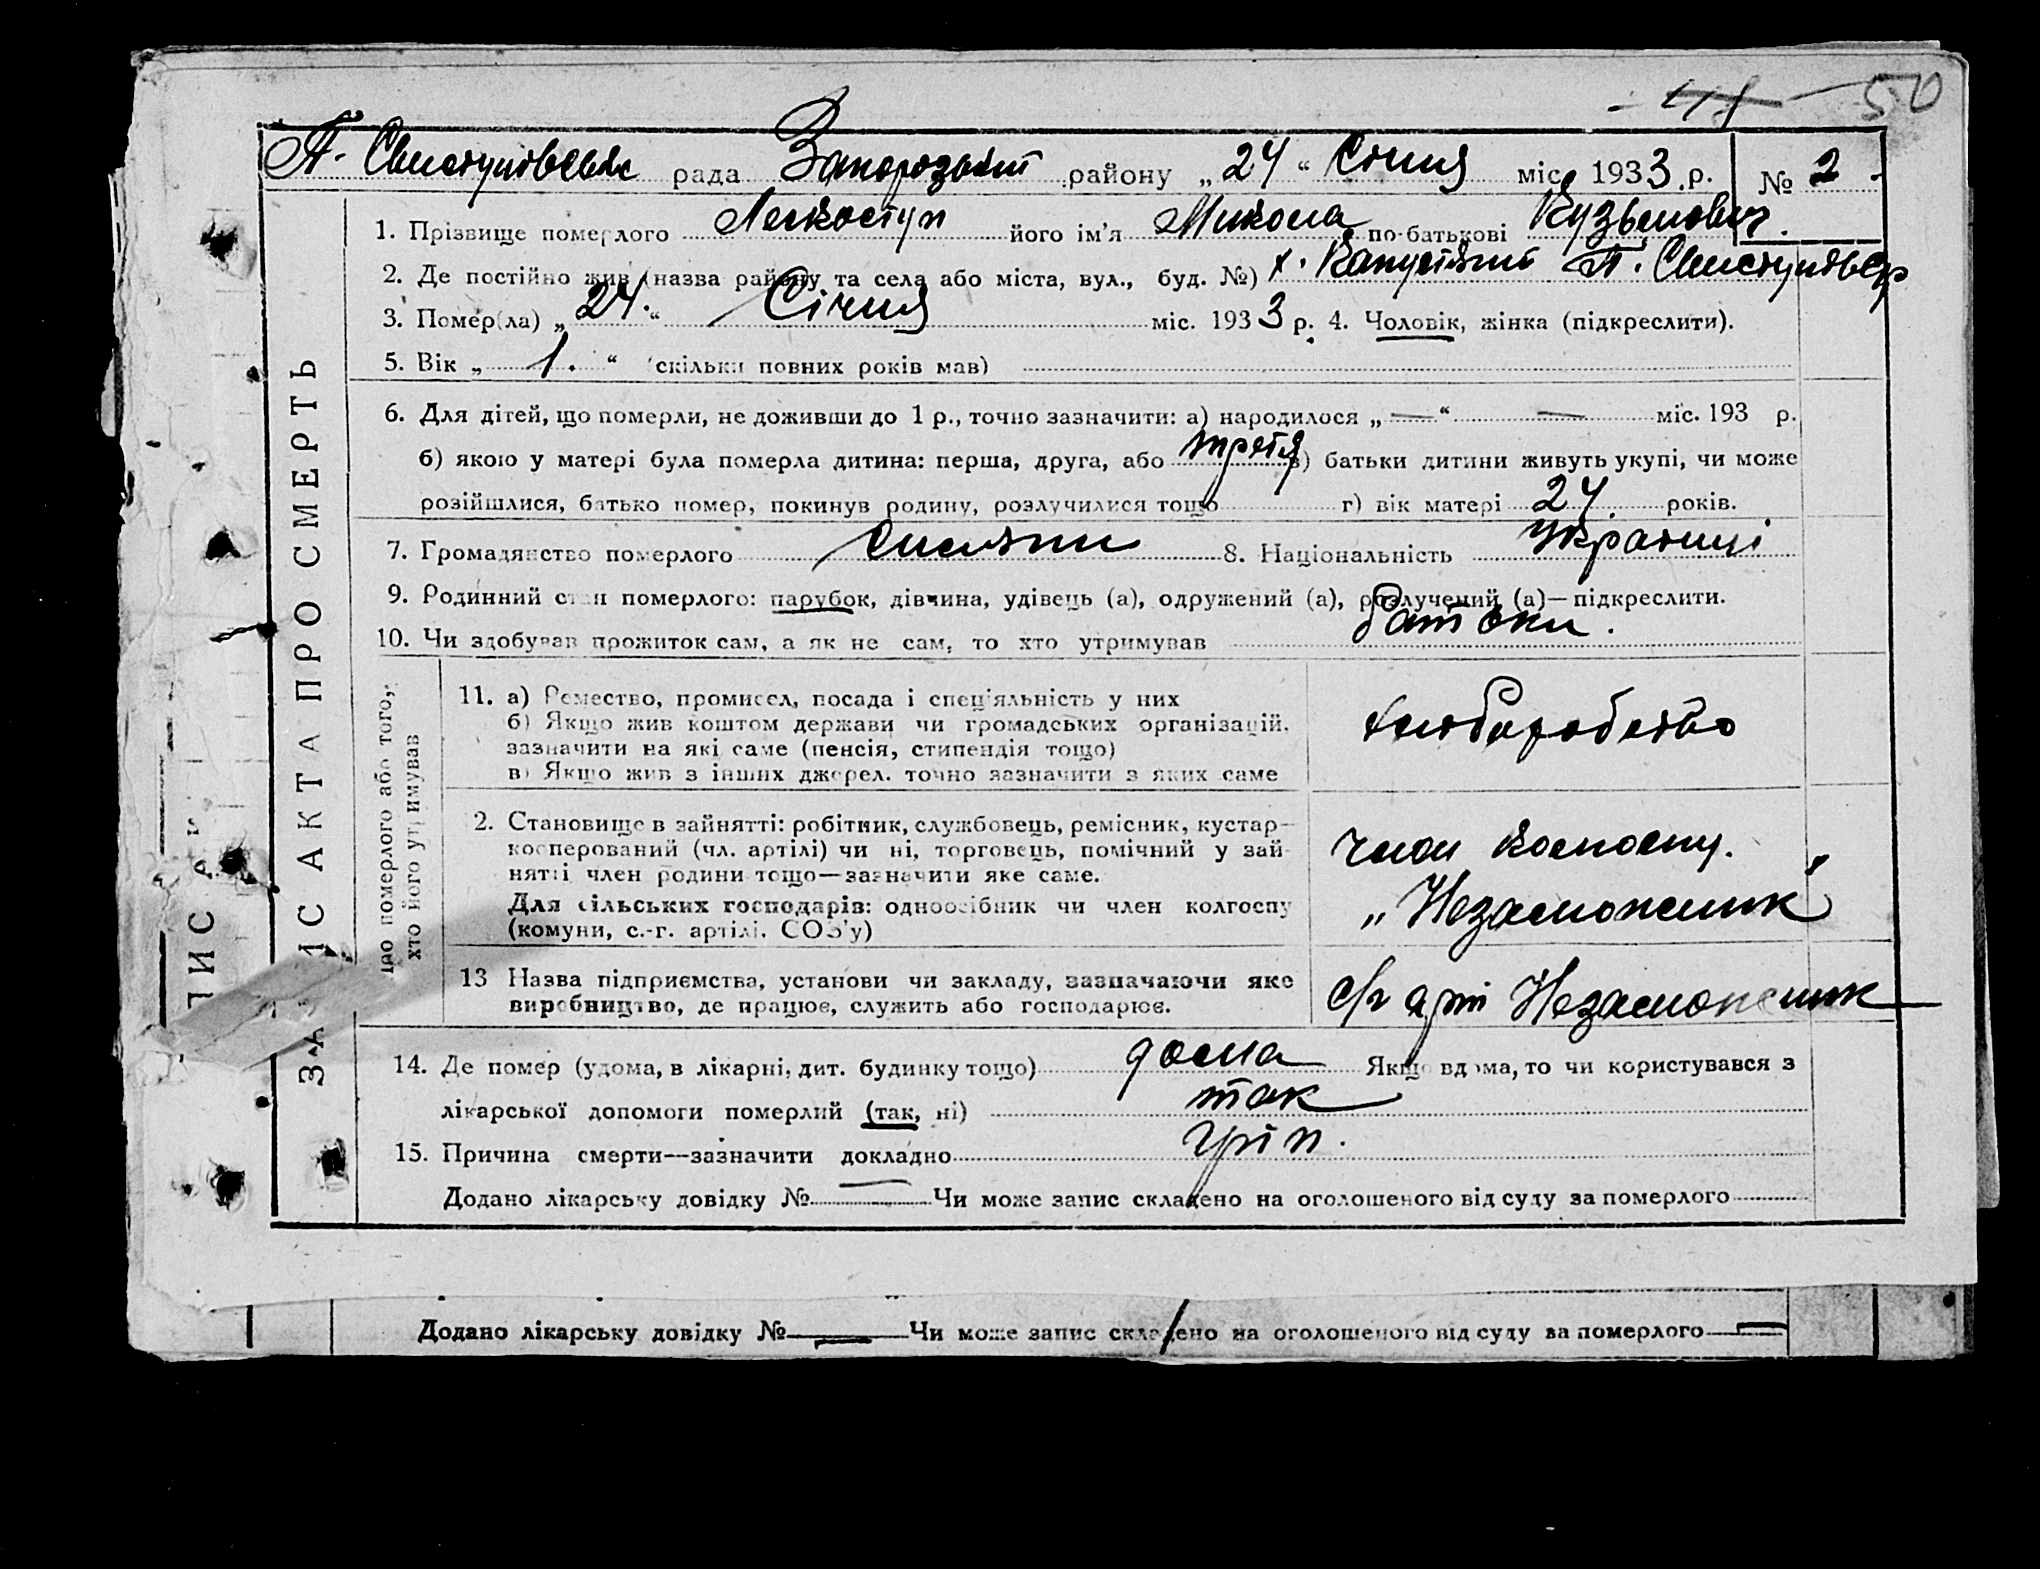 50
П. Свистунівська рада Запорозький району „24“ Січня міс 1933.р. № 2.
1. Прізвище померлого Легкоступ його ім’я Микола по-батькові Кузьмович.
2. Де постійно жив (назва району та села або міста, вул., буд. №) х. Капустяний П. Свистунівськ
3. Помер(ла) „24.“ Січня міс. 1933 р. 4. Чоловік, жінка (підкреслити).
5. Вік „1.“ скільки повних років мав)
6. Для дітей, що померли, не доживши до 1 р., точно зазначити: а) народилося „—“ — міс. 193 р.
б) якою у матері була померла дитина: перша, друга, або третя в) батьки дитини живуть укупі, чи може
розійшлися, батько помер, покинув родину, розлучилися тощо г) вік матері 24. років.
7. Громадянство померлого Селянин 8. Національність Українці
9. Родинний стан померлого: парубок, дівчина, удівець (а), одружений (а), розлучений (а)—підкреслити.
10. Чи здобував прожиток сам, а як не сам, то хто утримував батьки.
ЗАПИС АКТА ПРО СМЕРТЬ
про померлого або того,
хто його утримував
11. а) Ремество, промисел, посада і спец’яльність у них
б) Якщо жив коштом держави чи громадських організацій,
зазначити на які саме (пенсія, стипендія тощо)
в) Якщо жив з інших джерел. точно зазначити з яких саме
хліборобство
2. Становище в зайнятті: робітник, службовець, ремісник, кустар—
косперований (чл. артілі) чи ні, торговець, помічний у зай-
нятті член родини тощо—зазначити яке саме.
Для сільських господарів: одноосібник чи член колгоспу
(комуни, с.-г. артілі. СОЗ’у)
член колгоспу.
„Незаможник“
13 Назва підприємства, установи чи закладу, зазначаючи яке
виробництво, де працює, служить або господарює.
с/г арт Незаможник
14. Де помер (удома, в лікарні, дит. будинку тощо) дома Якщо вдома, то чи користувався з
лікарської допомоги померлий (так, ні) так
15. Причина смерти—зазначити докладно грип.
Додано лікарську довідку № — Чи може запис складено на оголошеного від суду за померлого
Додано лікарську довідку № — Чи може запис складено на оголошеного від суду за померлого —